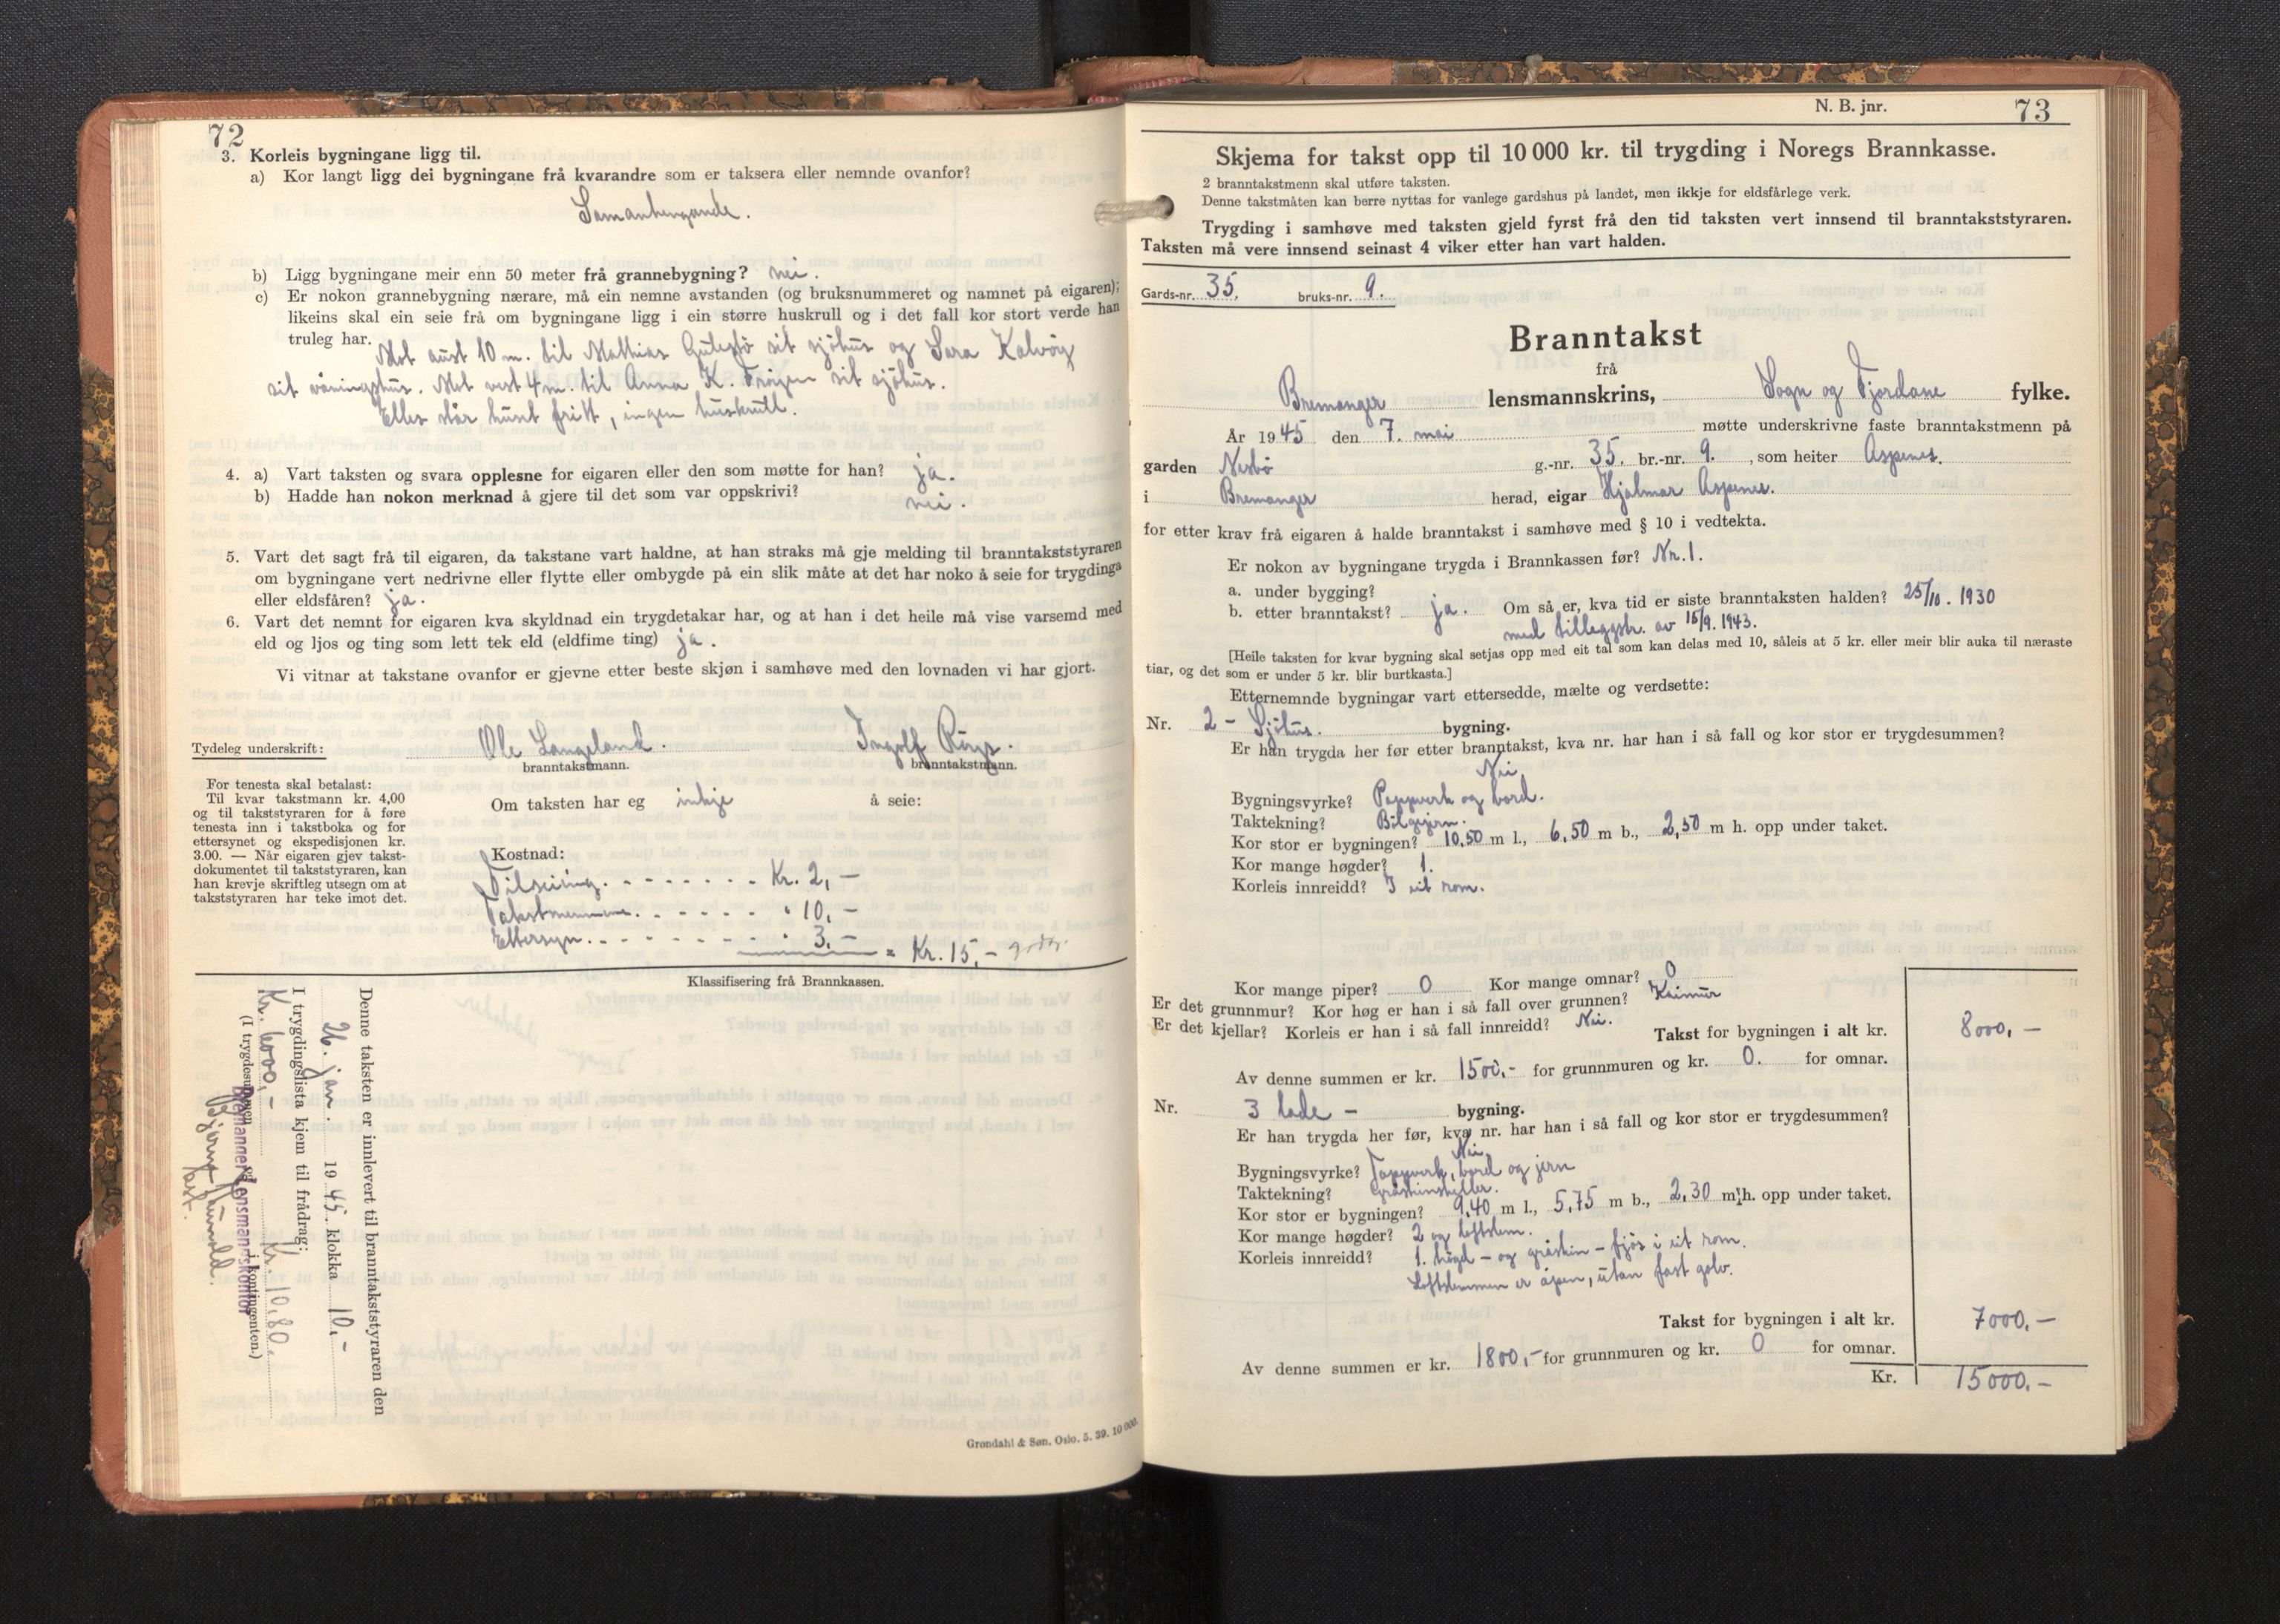 72
3. Korleis bygningane ligg til.
a) Kor langt ligg dei bygningane frå kvarandre som er taksera eller nemnde ovanfor?
Samanhengande.
b) Ligg bygningane meir enn 50 meter frå grannebygning? nei.
c) Er nokon grannebygning nærare, må ein nemne avstanden (og bruksnummeret og namnet på eigaren);
likeins skal ein seie frå om bygningane ligg i ein større huskrull og i det fall kor stort verde han
truleg har.
Mot aust 10 m. til Mathias Gulesbö sit sjöhus og Sara Kalvöy
sit våningshus. Mot vest 4 m. til Anna K. Fröyen sit sjöhus.
Elles står huset fritt, ingen huskrull.
4. a) Vart taksten og svara opplesne for eigaren eller den som møtte for han? ja.
b) Hadde han nokon merknad å gjere til det som var oppskrivi? nei.
5. Vart det sagt frå til eigaren, da takstane vart haldne, at han straks må gje melding til branntakststyraren
om bygningane vert nedrivne eller flytte eller ombygde på ein slik måte at det har noko å seie for trygdinga
eller eldsfåren? ja.
6. Vart det nemnt for eigaren kva skyldnad ein trygdetakar har, og at han i det heile må vise varsemd med
eld og ljos og ting som lett tek eld (eldfime ting) ja.
Vi vitnar at takstane ovanfor er gjevne etter beste skjøn i samhøve med den lovnaden vi har gjort.
Tydeleg underskrift: Ole Langeland. Ingolf Röys.
branntakstmann. branntakstmann.
For tenesta skal betalast:
Til kvar takstmann kr. 4,00
og til takststyraren for å føre
tenesta inn i takstboka og for
ettersynet og ekspedisjonen kr.
3.00. — Når eigaren gjev takst-
dokumentet til takststyraren, kan
han krevje skriftleg utsegn om at
takststyraren har teke imot det.
Om taksten har eg inkje å seie:
Kostnad:
Tilseiing. Kr. 2,—
Takstmennene 10,—
Ettersyn 3.—
= Kr. 15,—
Klassifisering frå Brannkassen.
Denne taksten er innlevert til branntakststyraren den
26. jan. 1945. klokka 10,-
I trygdingslista kjem til frådrag:
Kr. 6000,- Kr. 10,80.
(I trygdesummen og i kontingenten.)
Bremanger Lensmannskontor
Grøndahl & Søn, Oslo. 5. 39. 10 000.
N. B. jnr. 73
Skjema for takst opp til 10 000 kr. til trygding i Noregs Brannkasse.
2 branntakstmenn skal utføre taksten.
Denne takstmåten kan berre nyttas for vanlege gardshus på landet, men ikkje for eldsfårlege verk.
Trygding i samhøve med taksten gjeld fyrst frå den tid taksten vert innsend til branntakststyraren.
Taksten må vere innsend seinast 4 viker etter han vart halden.
Gards-nr. 35. bruks-nr. 9.
Branntakst
frå
Bremanger lensmannskrins, Sogn og Fjordane fylke.
År 1945 den 7. mai møtte underskrivne faste branntakstmenn på
garden Nesbö g.-nr. 35. br.-nr. 9. , som heiter Aspenes.
i Bremanger herad, eigar Hjalmar Aspenes.
for etter krav frå eigaren å halde branntakst i samhøve med § 10 i vedtekta.
Er nokon av bygningane trygda i Brannkassen før? Nr. 1.
a. under bygging?
b. etter branntakst? ja. Om så er, kva tid er siste branntaksten halden? 25/10. 1930
med tilleggstr. av 15/9. 1943.
[Heile taksten for kvar bygning skal setjas opp med eit tal som kan delas med 10, såleis at 5 kr. eller meir blir auka til næraste
tiar, og det som er under 5 kr. blir burtkasta.]
Etternemnde bygningar vart ettersedde, mælte og verdsette:
Nr. 2 - Sjöhus. bygning.
Er han trygda her før etter branntakst, kva nr. har han i så fall og kor stor er trygdesummen?
Nei
Bygningsvyrke? Pappverk og bord.
Taktekning? Bölgejern.
Kor stor er bygningen? 10.50 m l., 6.50 m b., 2,50 m h. opp under taket.
Kor mange høgder? 1.
Korleis innreidd? I eit rom.
Kor mange piper? 0 Kor mange omnar? 0
Er det grunnmur? Kor høg er han i så fall over grunnen? Kaimur
Er det kjellar? Korleis er han i så fall innreidd? Nei.
Takst for bygningen i alt kr. 8000,—
Av denne summen er kr. 1500,- for grunnmuren og kr. 0. for omnar.
Nr. 3 lade - bygning.
Er han trygda her før, kva nr. har han i så fall og kor stor er trygdesummen?
Nei
Bygningsvyrke? Pappverk, bord og jern
Taktekning? Gråsteinsheller.
Kor stor er bygningen? 9,40 m l., 5,75 m b., 2,30 m h. opp under taket.
Kor mange høgder? 2 og loftslem.
Korleis innreidd? 1. högd - og gråstein - fjös i eit rom.
Loftslemmen er åpen, utan fast golv.
Takst for bygningen i alt kr. 7000,—
Av denne summen er kr. 1800,- for grunnmuren og kr. 0 for omnar.
Kr. 15000,—